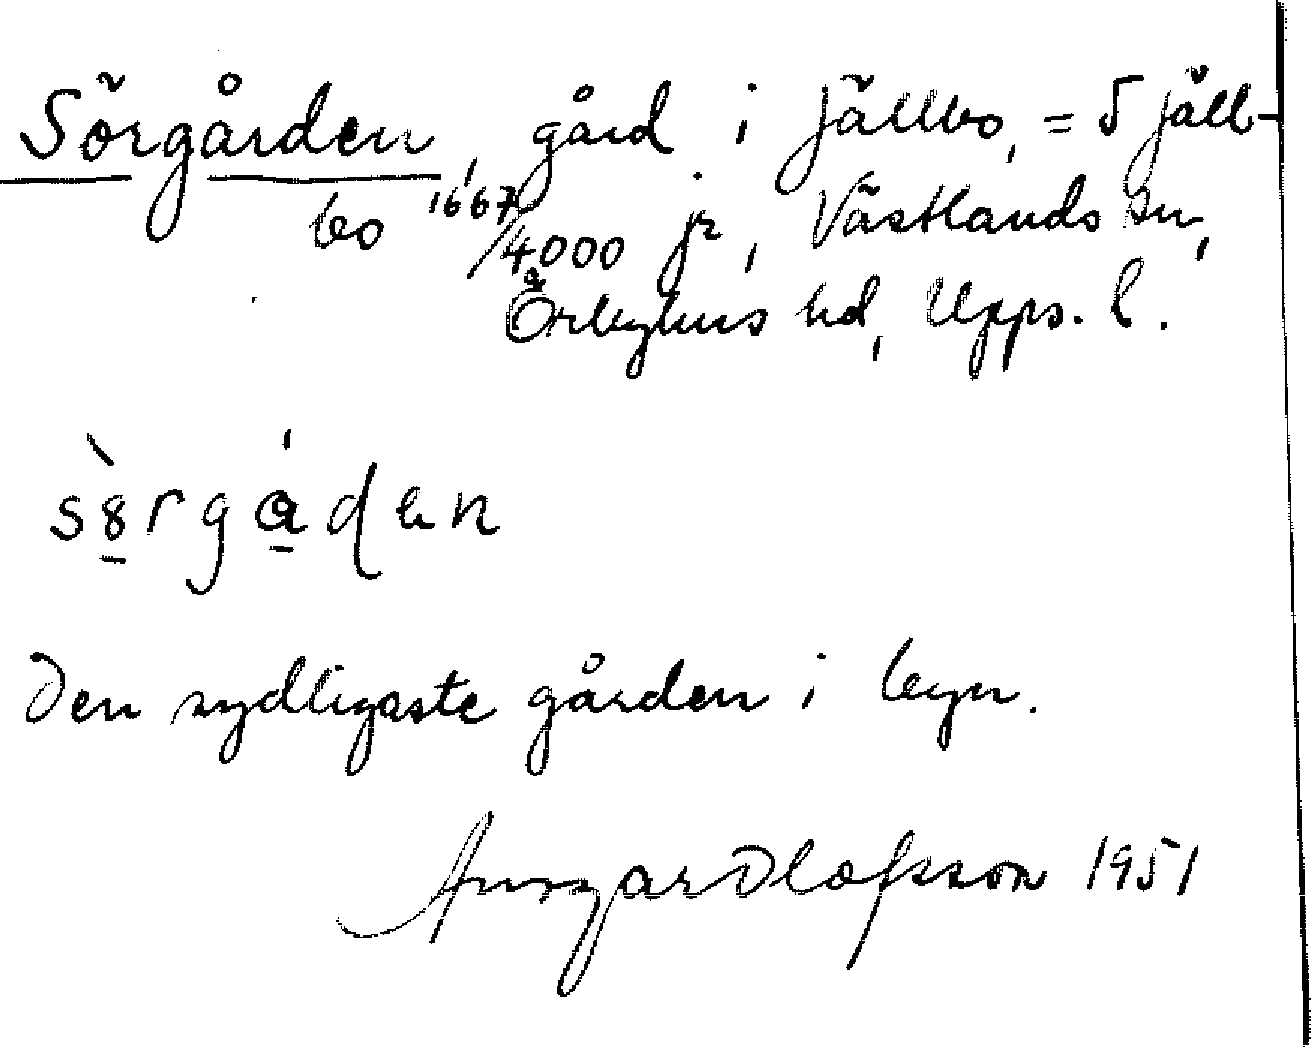 Sörgården, gård i Jällbo, = 5 Jäll-
bo 1667/4000 jr, Västlands sn,
Örbyhus hd, Upps. l.
Den sydligaste gården i byn.
Ansgar Olofsson 1951